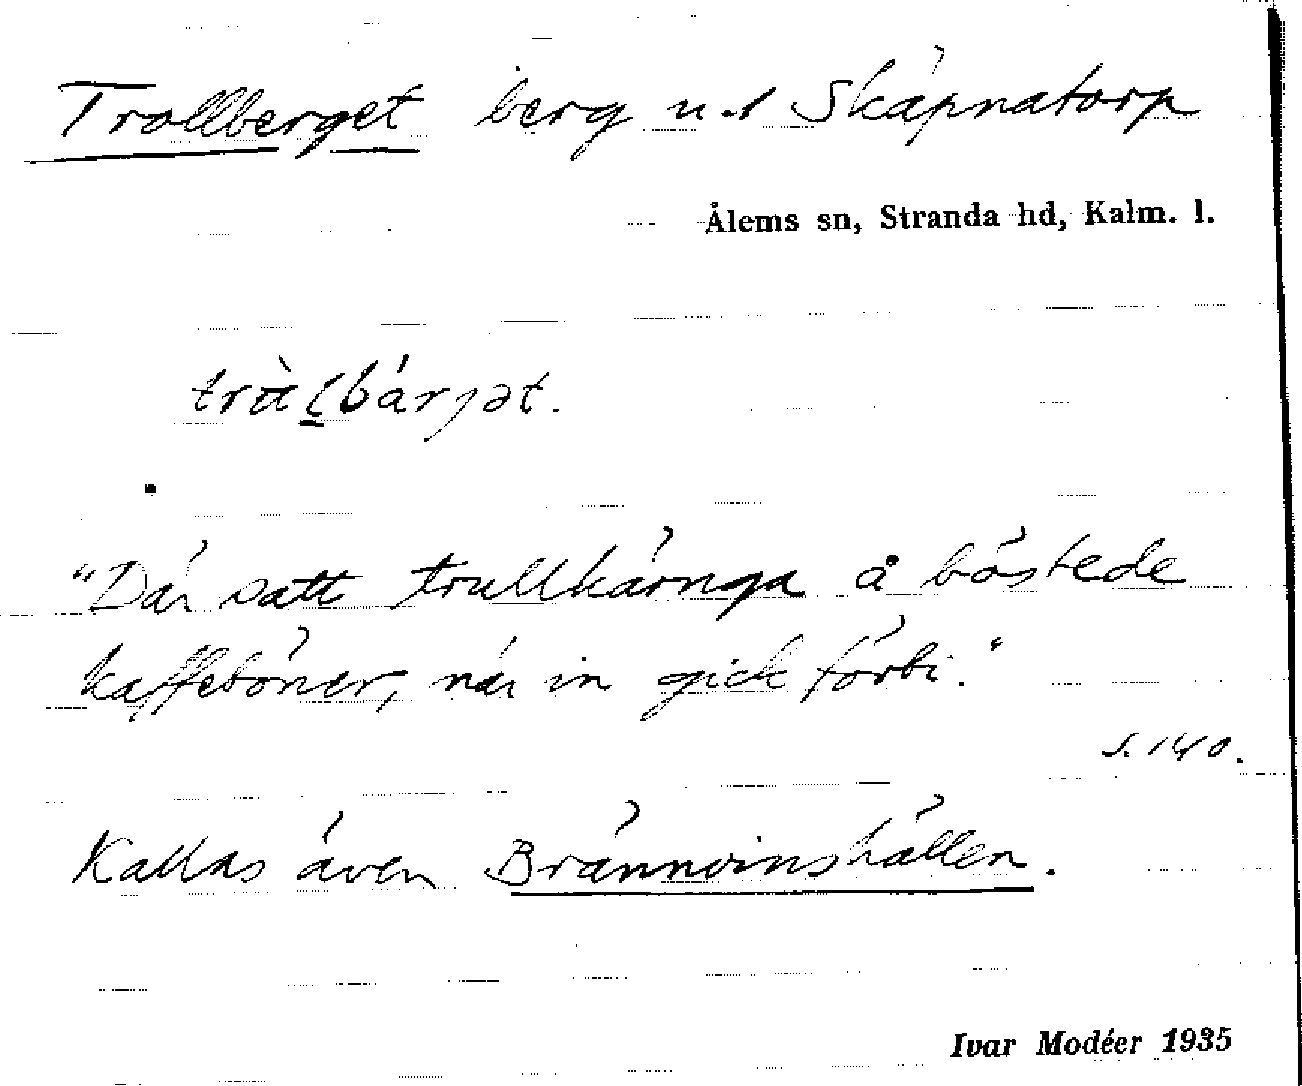 Trollberget berg u. t Skäpnatorp
Ålems sn, Stranda hd, Kalm. l.
"Där satt trullkärnga å böstede
kaffebönor, när in gick förbi."
s. 140.
Kallas även Brännvinshällen.
Ivar Modéer 1935